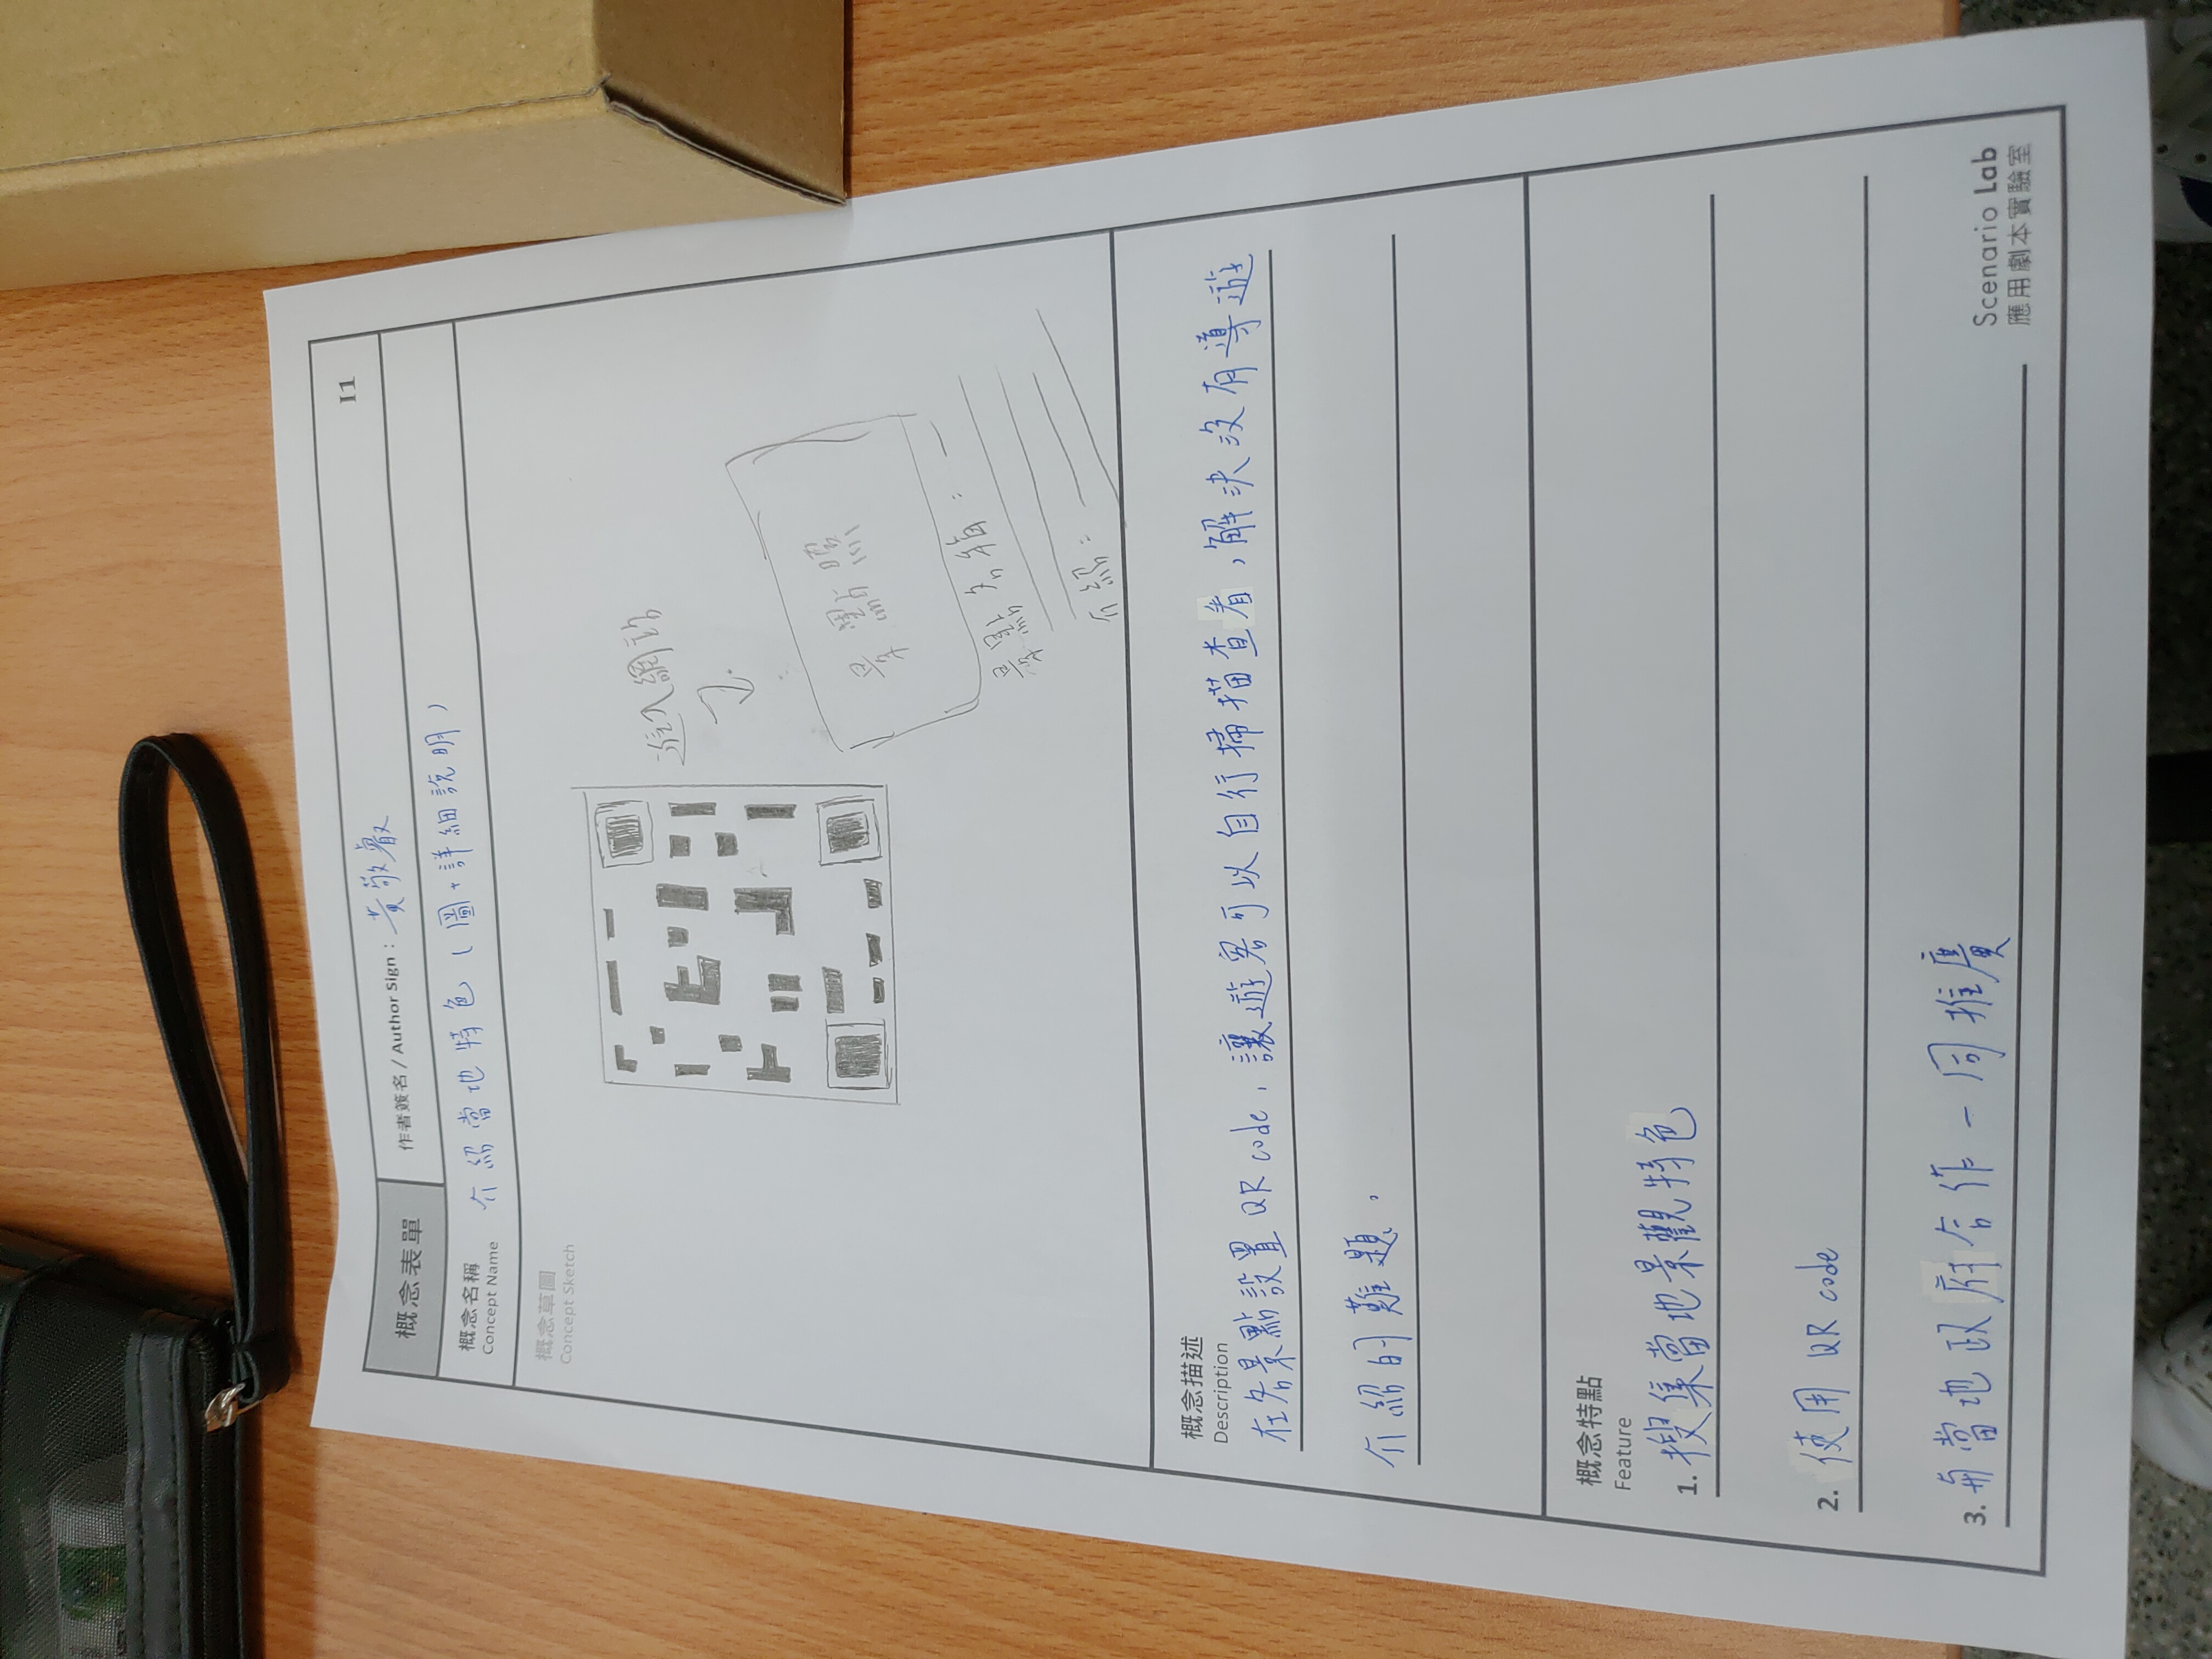 I1
概念表單
作者簽名 / Author Sign : 黃敬叡
概念名稱
Concept Name
介紹當地特色 ( 圖+詳細說明 )
概念草圖
Concept Sketch
進入網站
景點照
景點名稱 :
介紹 :
概念描述
Description
在各景點設置 QR code, 讓遊客可以自行掃描查看,解決沒有導遊
介紹的難題。
概念特點
Feature
1. 搜集當地景觀特色
2. 使用 QR code
3. 與當地政府合作一同推廣
Scenario Lab
應用劇本實驗室